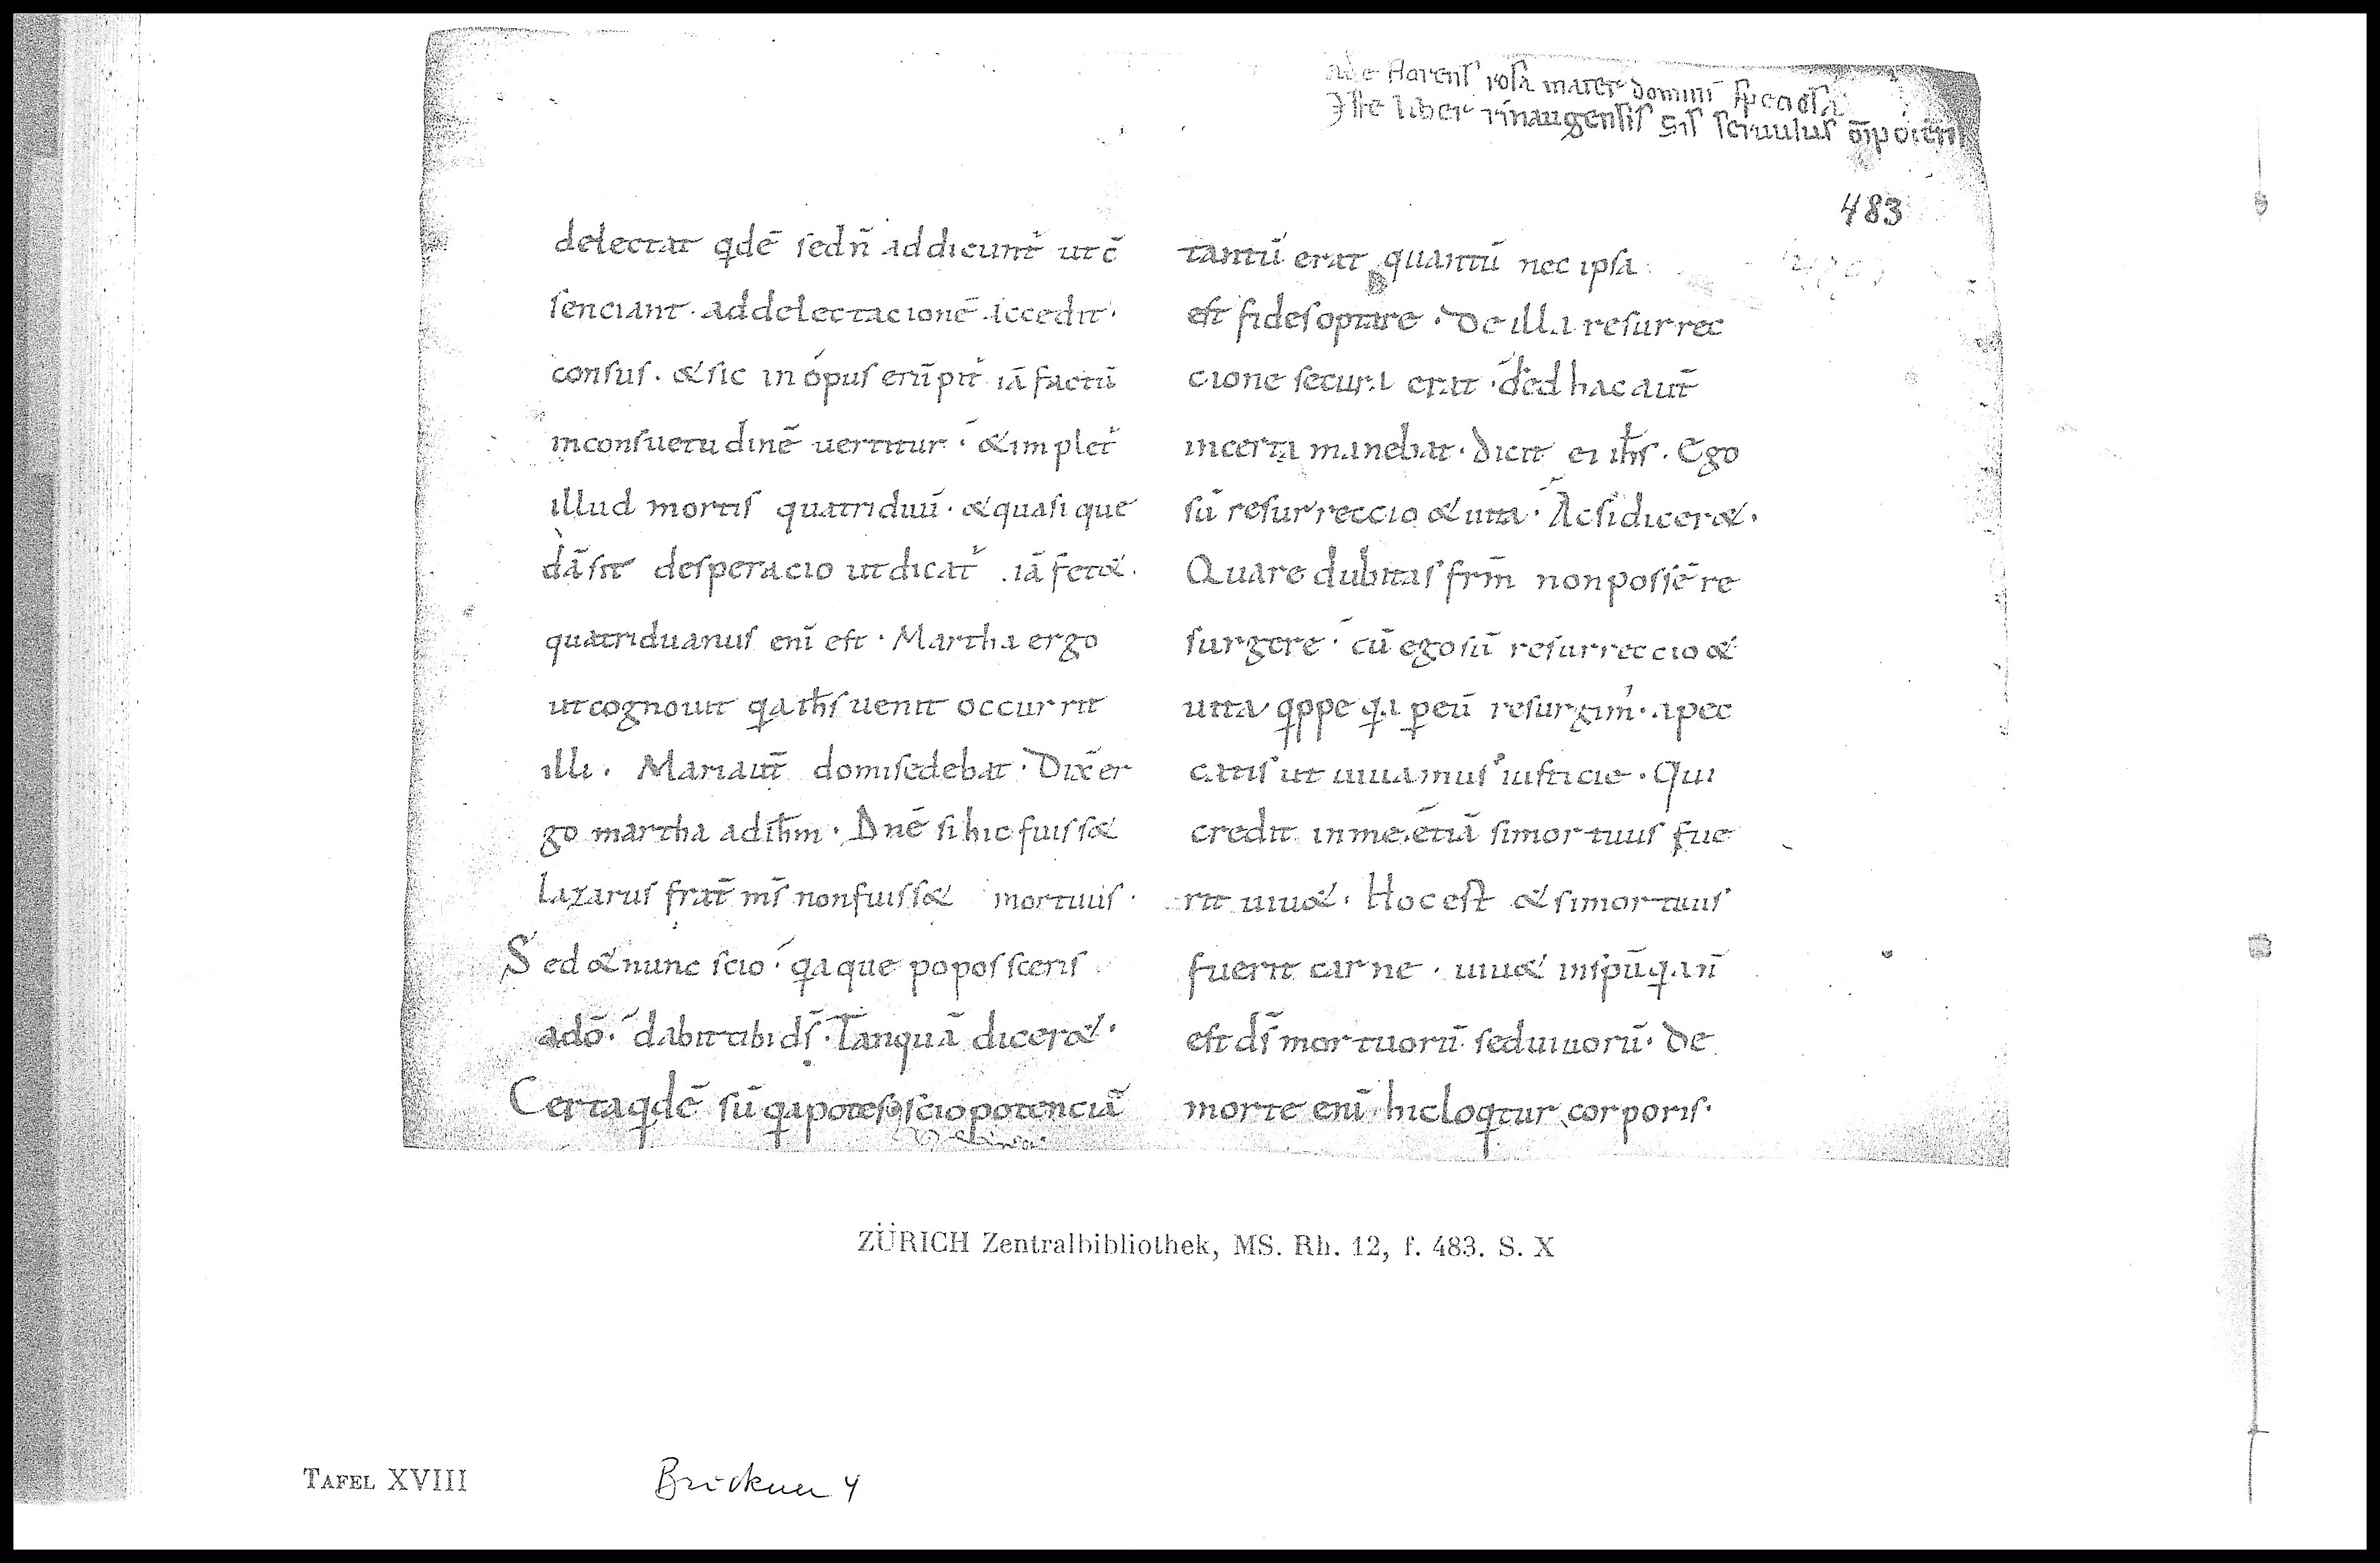 florens rosa mater domini speciosa
Iste liber rinaugensis sis seruulus om̄potēn
483
delectat qdē sed n̄ addicunt̄ ut c̄
senciant · ad delectacionē accedit ·
consus · & sic in opus erūpit iā factū
in consuetudinē uertitur · & implet̄
illud mortis quatriduū · & quasi que
dā sit desperacio ut dicat̄ · iā fet& ·
quatriduanus enī est · Martha ergo
ut cognouit qa ih̄s uenit occurrit
illi · Mari aut̄ domi sedebat · Dix̄ er
go martha ad ih̄m · Dnē si hic fuiss&
lazarus frat̄ ms̄ non fuiss& mortuus ·
Sed & nunc scio · qa que poposceris
a dō · dabit tibi ds̄ · Tanquā dicer& ·
Certa qdē sū qa potes & scio potenciā
tantū erat quantū nec ipsa
est fides optare · De illa resurrec
cione secura erat · ded hac aut̄
incerta manebat · dicit ei ih̄s · Ego
sū resurreccio & uita · Ac si dicer& ·
Quare dubitas frm̄ non possē re
surgere · cū ego sū resurreccio &
uita qppe qa p eū resurgim̄ · a pec
catis ut uiuamus iusticie · Qui
credit in me · etiā si mortuus fue
rit uiu& · Hoc est & si mortuus
fuerit carne · uiu& in spū qa n̄
est ds̄ mortuorū sed uiuorū · De
morte enī hic loqtur corporis ·
ZÜRICH Zentralbibliothek, MS. Rh. 12, f. 483. S. X
TAFEL XVIII
Bruckner 4